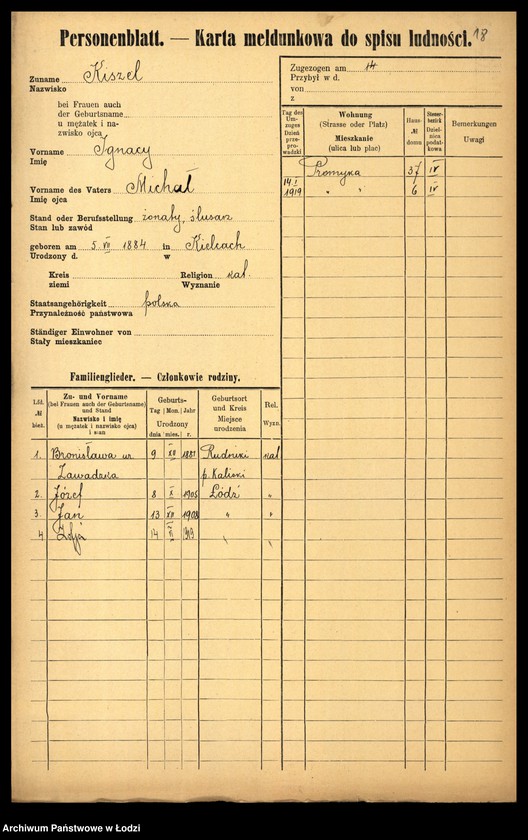 Personenblatt. — Karta meldunkowa do spisu ludności. 18
Zuname Kiszel
Nazwisko
bei Frauen auch
der Geburtsname
u mężatek i na-
zwisko ojca
Vorname Ignacy
Imię
Vorname des Vaters Michał
Imię ojca
Stand oder Berufsstellung żonaty, ślusarz
Stan lub zawód
geboren am 5 VII 1884 in Kielcach
Urodzony d. w
Kreis Religion kat.
ziemi Wyznanie
Staatsangehörigkeit polska
Przynależność państwowa
Ständiger Einwohner von
Stały mieszkaniec
Zugezogen am 14
Przybył w d.
von
z
Tag des Um-zuges Dzień prze-prowadzki
Wohnung
(Strasse oder Platz)
Mieszkanie
(ulica lub plac)
Haus-
№
domu
Steuer-
bezirk
Dziel-
nica
podat-
kowa
Bemerkungen
Uwagi
Promyka 37 IV
14.I
1919 " " 6 IV
Familienglieder. — Członkowie rodziny.
Lfd.
№
bież.
Zu- und Vorname
(bei Frauen auch der Geburtsname)
und Stand
Nazwisko i imię
(u mężatek i nazwisko ojca)
i stan
Geburts-
Tag Mon. Jahr
Urodzony
dnia mies. r.
Geburtsort
und Kreis
Miejsce
urodzenia
Rel.
Wyzn.
1. Bronisława ur. 9 XII 1881 Rudniki kat
Zawadzka p. Kaliski
2. Józef 8 X 1905 Łódź "
3. Jan 13 XII 1908 " "
4 Zofja 14 VI 1913 " "
Archiwum Państwowe w Łodzi